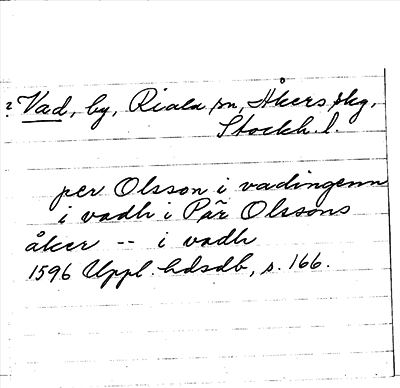 ? Vad, by, Riala sn, Åkers skg,
Stockh. l.
per Olsson i vadingenn
i vadh i Pär Olssons
åker -- i vadh
1596 Uppl. hdsdb, s. 166.